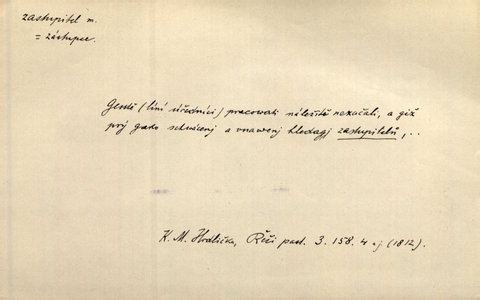 zastupitel m.
= zástupce.
Gesstě (líní úředníci) pracowati náležitě nezačali, a giž
prý gako schwácenj a vnawenj hledagj zastupitelů, ..
K. M. Hrdlička, Řeči past. 3. 158. 4 (1812).